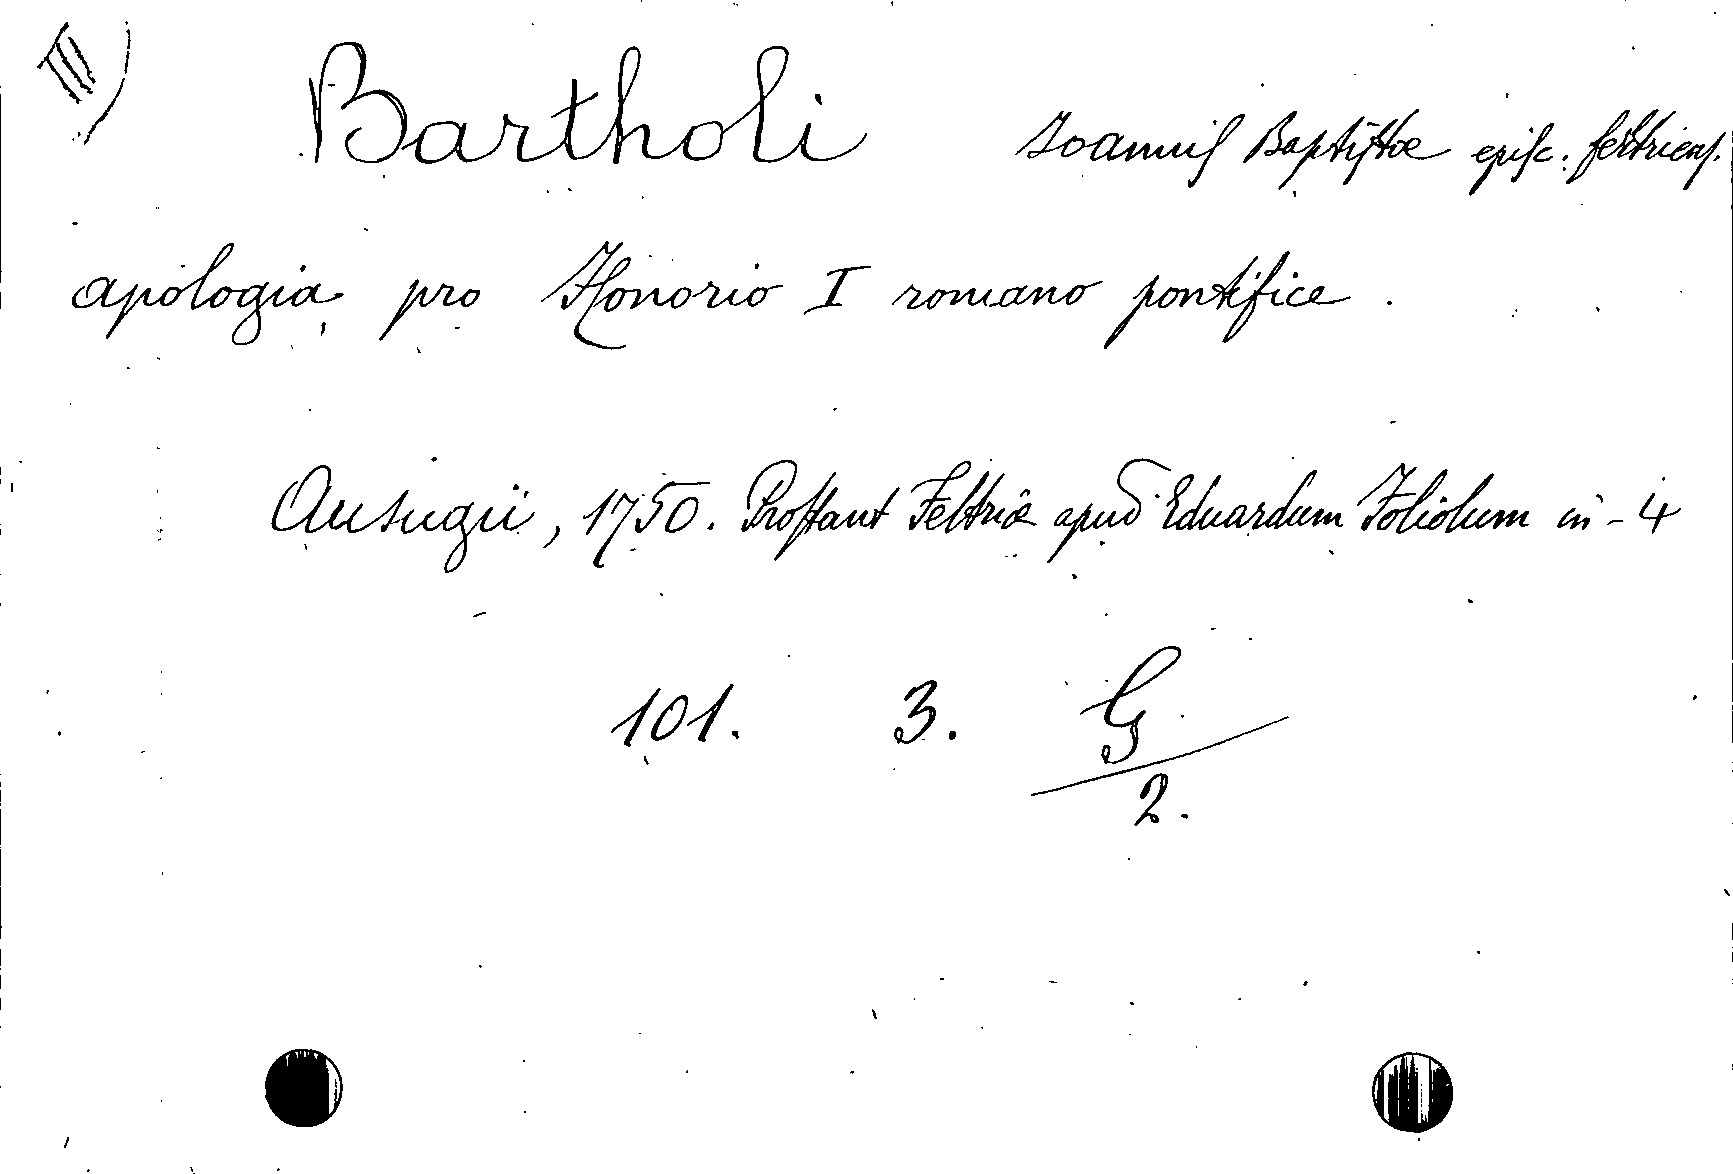 III)
Bartholi Joannis Baptistae episc. feltriens.
apologia pro Honorio I romano pontifice.
Ausugii, 1750. Prostant Feltriae apud Eduardum Foliolum in-4
101. 3. G
2.